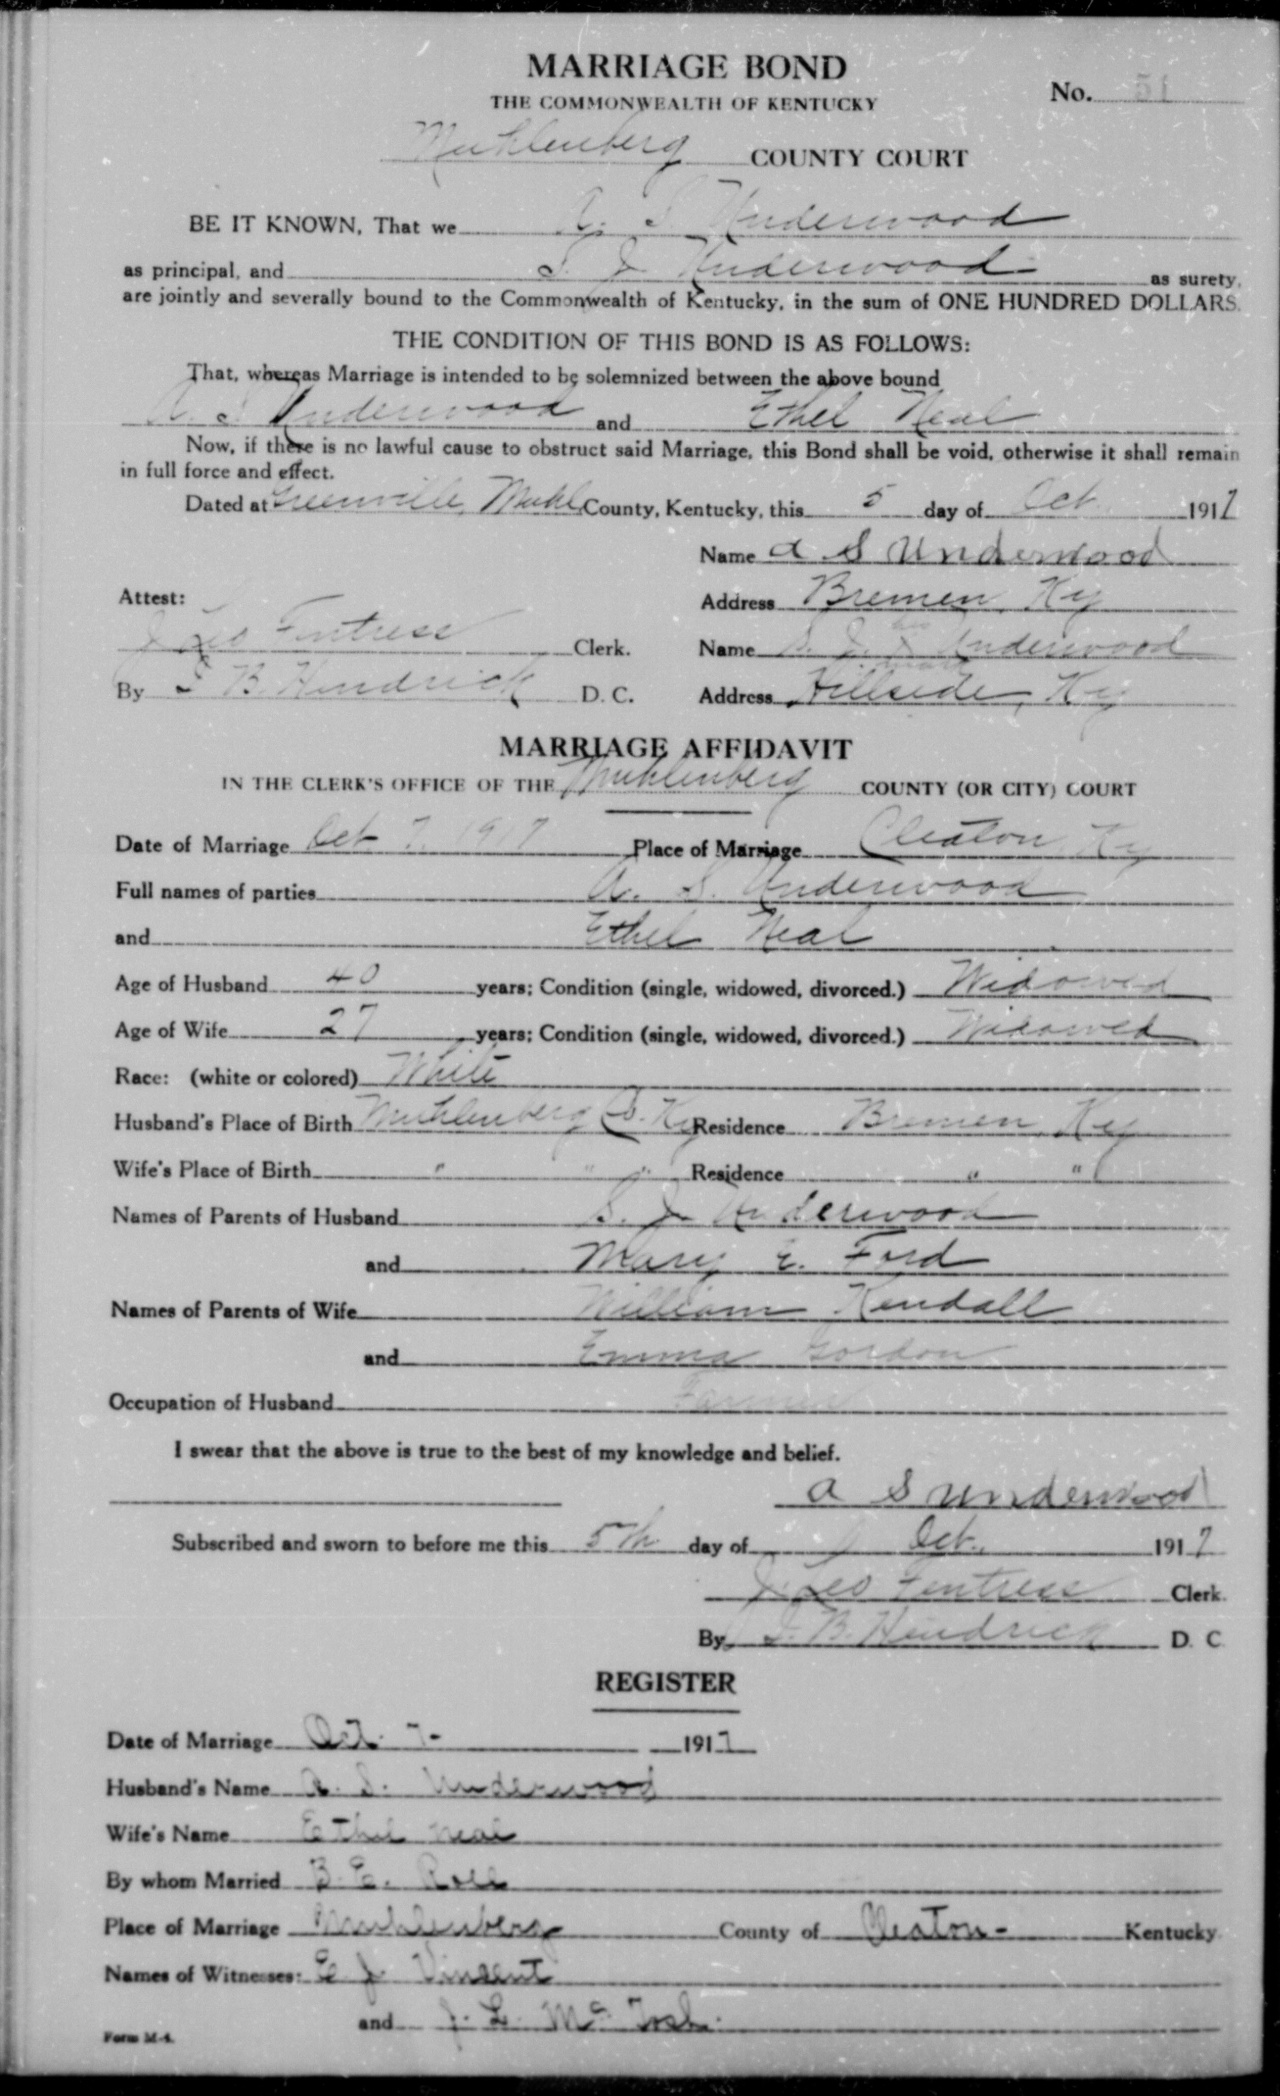 MARRIAGE BOND
No. 51
THE COMMONWEALTH OF KENTUCKY
Muhlenberg COUNTY COURT
BE IT KNOWN, That we A. S. Underwood
as principal, and S. J. Underwood as surety,
are jointly and severally bound to the Commonwealth of Kentucky, in the sum of ONE HUNDRED DOLLARS.
THE CONDITION OF THIS BOND IS AS FOLLOWS:
That, whereas Marriage is intended to be solemnized between the above bound
A. S. Underwood and Ethel Neal
Now, if there is no lawful cause to obstruct said Marriage, this Bond shall be void, otherwise it shall remain
in full force and effect.
Dated at Greenville, Muhl. County, Kentucky, this 5 day of Oct. 1917
Name A S Underwood
Attest:
Address Bremen, Ky
J Leo Fentress Clerk.
Name S. J. his X mark Underwood
By I B. Hendrick D. C.
Address Hillside, Ky
MARRIAGE AFFIDAVIT
IN THE CLERK'S OFFICE OF THE Muhlenberg COUNTY (OR CITY) COURT
Date of Marriage Oct. 7, 1917 Place of Marriage Cleaton, Ky
Full names of parties A. S. Underwood
and Ethel Neal
Age of Husband 40 years; Condition (single, widowed, divorced.) Widowed
Age of Wife 27 years; Condition (single, widowed, divorced.) Widowed
Race: (white or colored) White
Husband's Place of Birth Muhlenberg Co. Ky Residence Bremen, Ky
Wife's Place of Birth " " " Residence " "
Names of Parents of Husband S. J. Underwood
and Mary E. Ford
Names of Parents of Wife William Kendall
and Emma Gordon
Occupation of Husband Farmer
I swear that the above is true to the best of my knowledge and belief.
A S Underwood
Subscribed and sworn to before me this 5th day of Oct. 1917
J. Leo Fentress Clerk.
By I. B. Hendrick D. C
REGISTER
Date of Marriage Oct. 7- 1917
Husband's Name A. S. Underwood
Wife's Name Ethel Neal
By whom Married B. E.
Place of Marriage Muhlenberg County of Cleaton- Kentucky
Names of Witnesses: E J Vincent
and J. L. McTosh.
Form M-4.